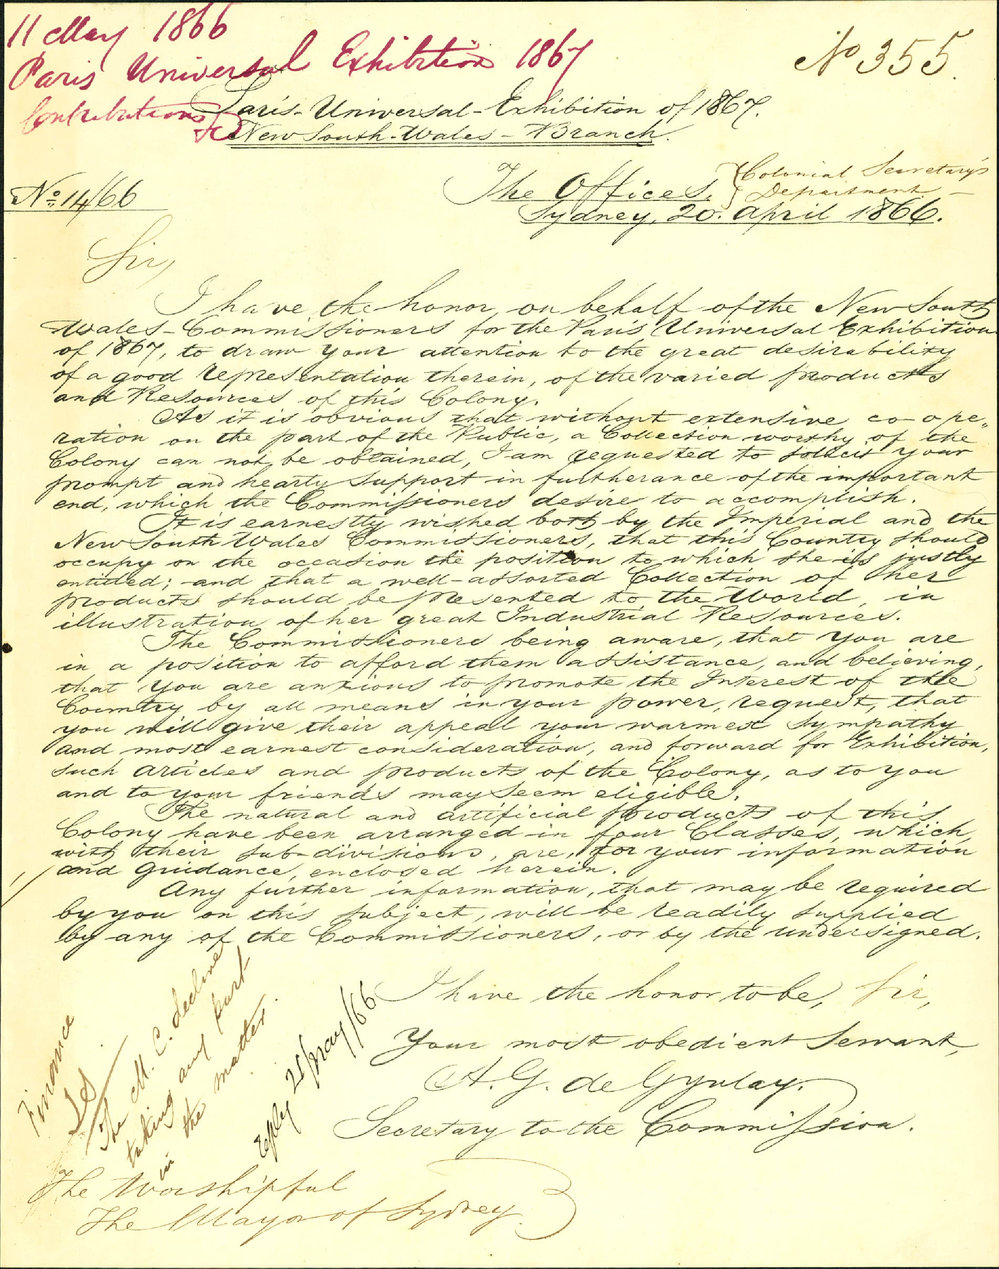 11 May 1866
Paris Universal Exhibition 1867
Contributions
No 355.
Paris-Universal-Exhibition of 1867.
New South-Wales-Branch.
No 14/66
The Offices. } Colonial Secretary's
Department
Sydney, 20. April 1866.
Sir,
I have the honor, on behalf of the New South
Wales-Commissioners for the Paris Universal Exhibition
of 1867, to draw your attention to the great desirability
of a good representation therein, of the varied products
and Resources of this Colony.
As it is obvious that without extensive co-ope-
ration on the part of the Public, a Collection worthy of the
Colony can not be obtained, I am requested to solicit your
prompt and hearty support in furtherance of the important
end, which the Commissioners desire to accomplish.
It is earnestly wished both by the Imperial and the
New South Wales Commissioners, that this Country should
occupy on the occasion the position to which she is justly
entitled; and that a well-assorted Collection of her
products should be presented to the World, in
illustration of her great Industrial Resources.
The Commissioners being aware, that you are
in a position to afford them assistance, and believing,
that you are anxious to promote the Interest of the
Country by all means in your power, request, that
you will give their appeal your warmest sympathy
and most earnest consideration, and forward for Exhibition,
such articles and products of the Colony, as to you
and to your friends may seem eligible.
The natural and artificial products of this
Colony have been arranged in four Classes, which,
with their sub-divisions, are, for your information
and guidance, enclosed herein.
Any further information, that may be required
by you on this subject, will be readily supplied
by any of the Commissioners, or by the undersigned.
I have the honor to be, Sir,
Your most obedient Servant,
A. G. de Gyulay.
Secretary to the Commission.
Finance
The M. C. decline
taking any part
in the matter.
Reply 25/May/66
The Worshipful
The Mayor of Sydney.